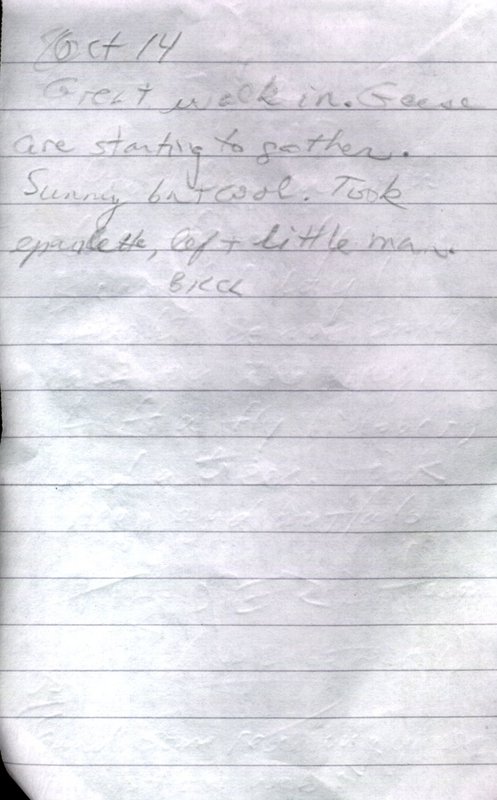 Oct 14
Great walk in. Geese
are starting to gather.
Sunny but cool. Took
epaulette, left little man.